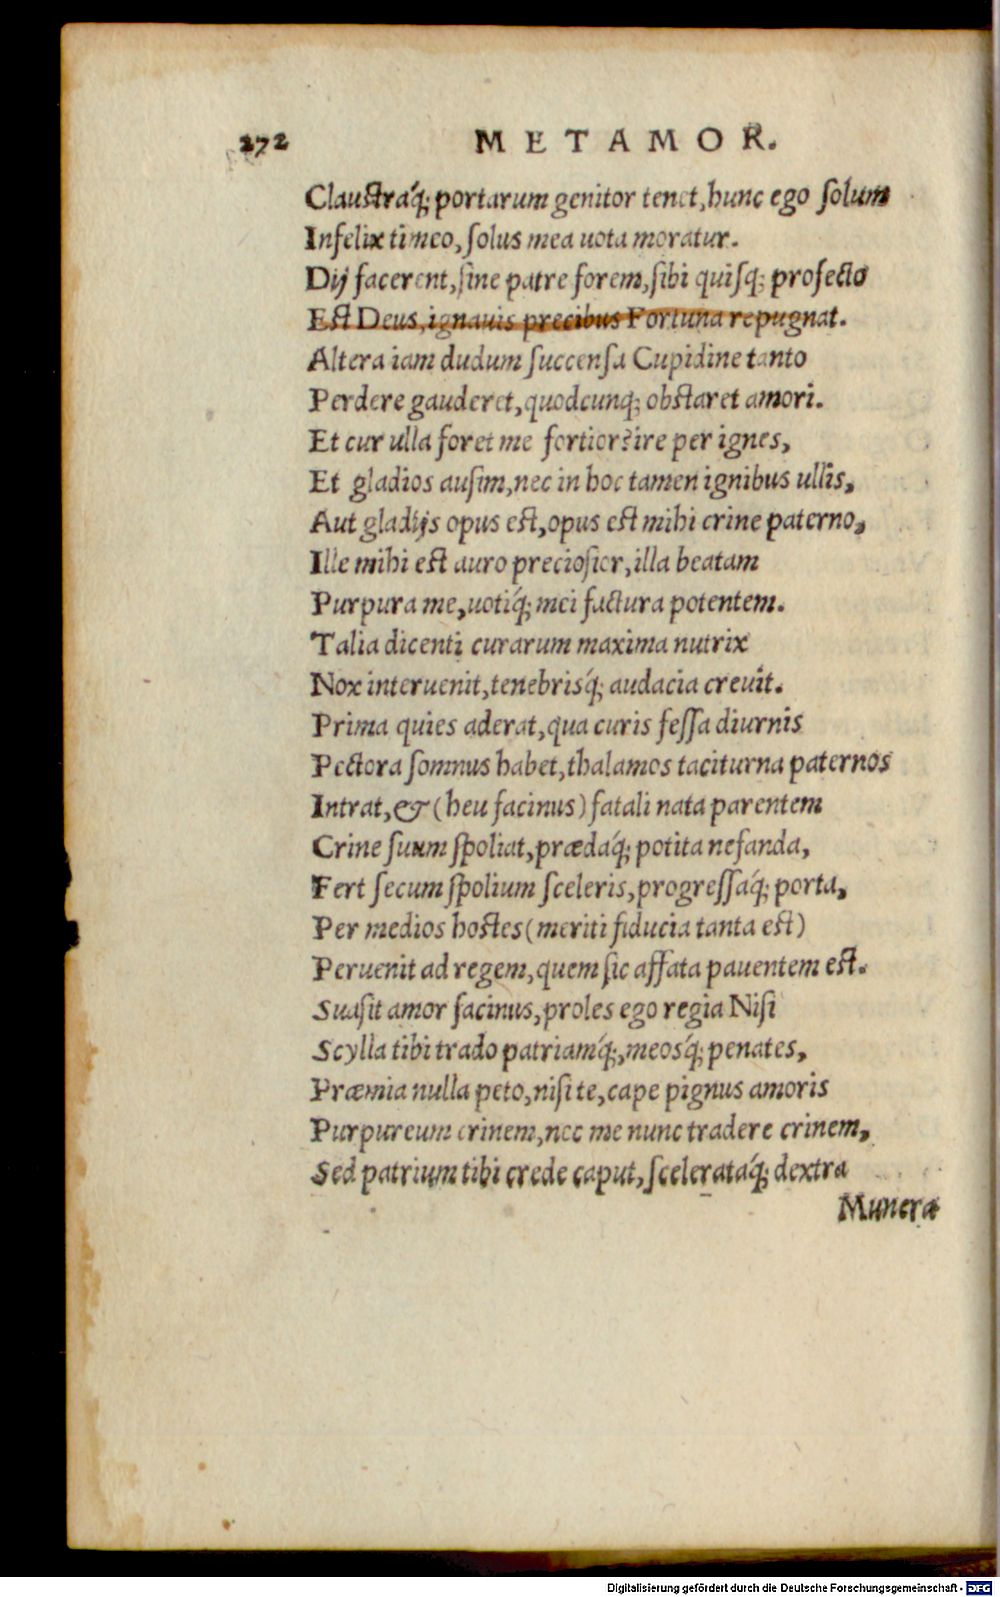 272 METAMOR.
Claustraq́; portarum genitor tenet, hunc ego solum
Infelix timeo, solus mea uota moratur.
Dij facerent, sine patre forem, sibi quisq; profecto
Est Deus, ignauis precibus Fortuna repugnat.
Altera iam dudum succensa Cupidine tanto
Perdere gauderet, quodcunq; obstaret amori.
Et cur ulla foret me fortior? ire per ignes,
Et gladios ausim, nec in hoc tamen ignibus ullis,
Aut gladijs opus est, opus est mihi crine paterno,
Ille mihi est auro preciosior, illa beatam
Purpura me, uotiq́; mei factura potentem.
Talia dicenti curarum maxima nutrix
Nox interuenit, tenebrisq́; audacia creuit.
Prima quies aderat, qua curis fessa diurnis
Pectora somnus habet, thalamos taciturna paternos
Intrat, & (heu facinus) fatali nata parentem
Crine suum spoliat, prædaq́; potita nefanda,
Fert secum spolium sceleris, progressaq́; porta,
Per medios hostes (meriti fiducia tanta est)
Peruenit ad regem, quem sic affata pauentem est.
Suasit amor facinus, proles ego regia Nisi
Scylla tibi trado patriamq́;, meosq́; penates,
Præmia nulla peto, nisi te, cape pignus amoris
Purpureum crinem, nec me nunc tradere crinem,
Sed patrium tibi crede caput, scelerataq́; dextra
Munera
Digitalisierung gefördert durch die Deutsche Forschungsgemeinschaft - DFG